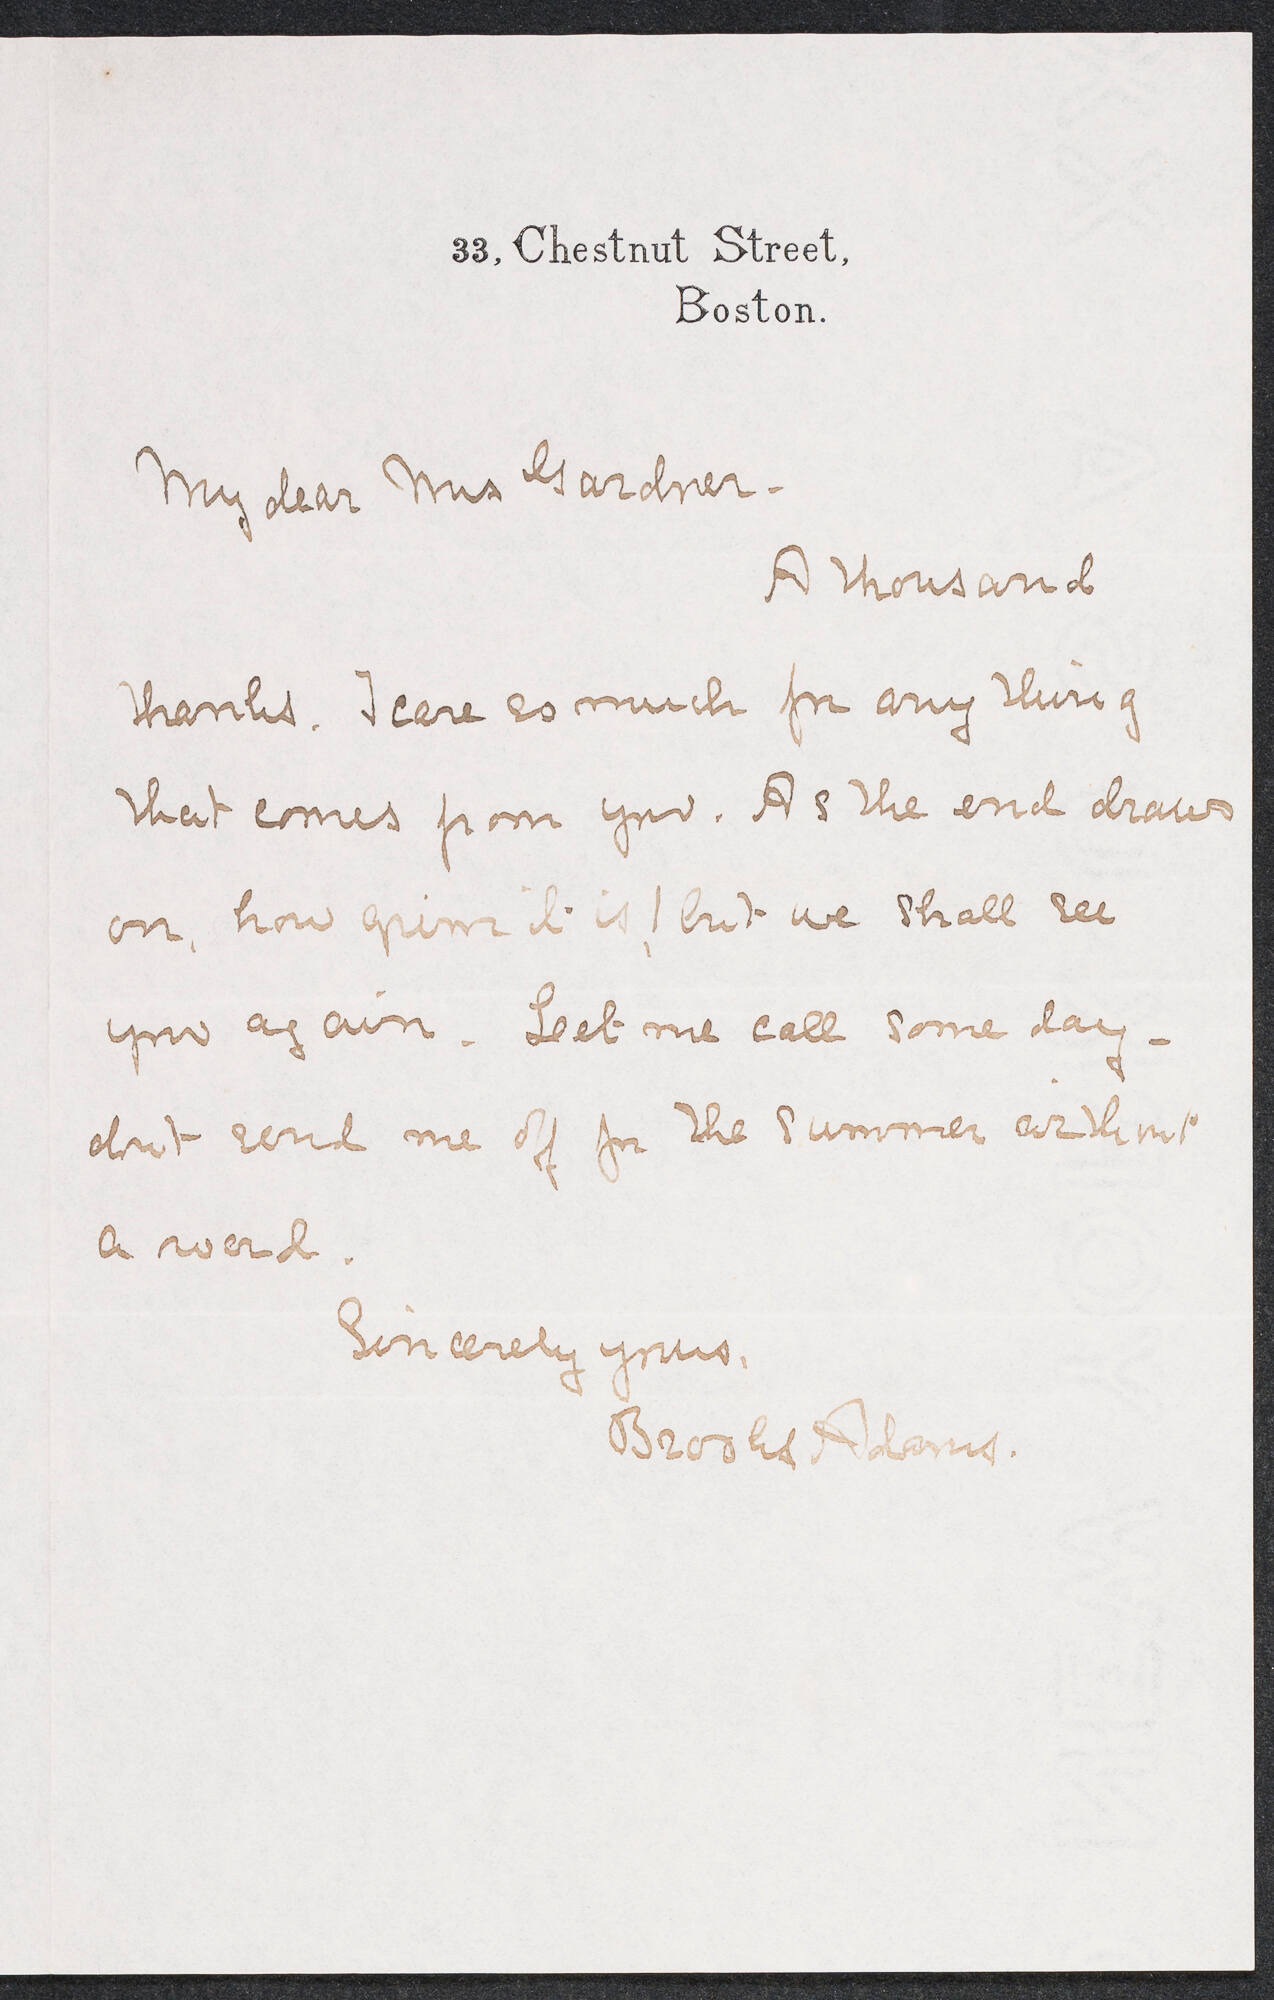 33, Chestnut Street,
Boston.
My dear Mrs Gardner-
A thousand
thanks. I care so much for any thing
that comes from you. As the end draws
on, how grim it is! but we shall see
you again. Let me call some day-
don't send me off for the summer without
a word.
Sincerely yours,
Brooks Adams.